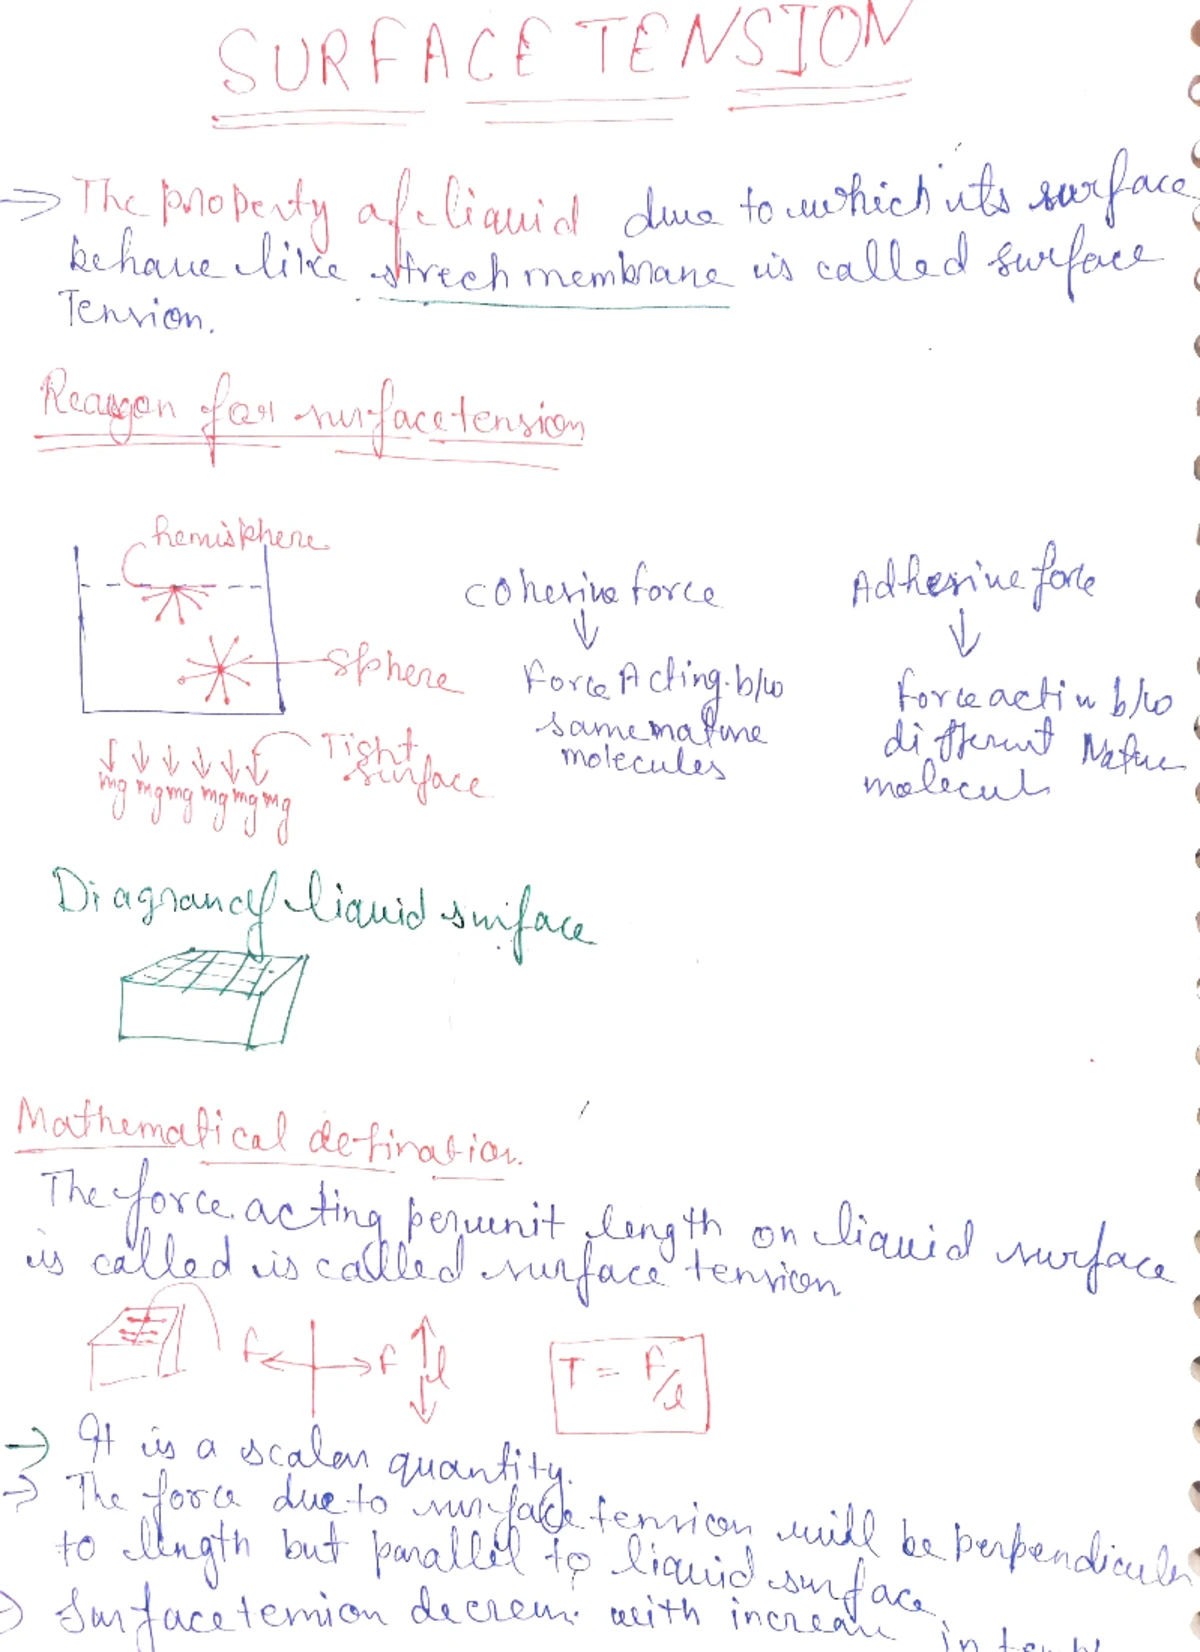 SURFACE TENSION
⇒ The property of liquid due to which its surface
behave like strech membrane is called surface
Tension.
Reason for surface tension
hemisphere
Cohesive force
↓
Force Acting b/w
same nature
molecules
Adhesive force
↓
Force actin b/w
different Nature
molecul
Sphere
Tight
surface
mg mg mg mg mg mg
Diagram of liquid surface
Mathematical defination.
The force acting per unit length on liquid surface
is called is called surface tension
F F l
T = F/l
→ It is a scalar quantity.
→ The force due to surface tension will be perpendicular
to length but parallel to liquid surface.
Surface tension decreas with increase in temp